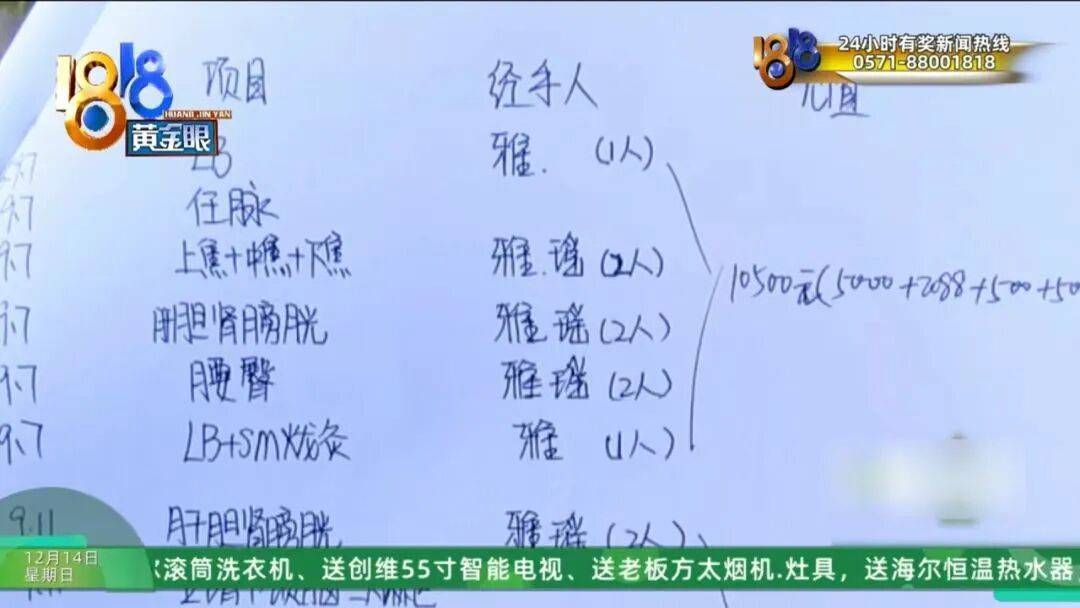 1818
HUANG JIN YAN
黄金眼
24小时有奖新闻热线
0571-88001818
项目 经手人
LB 雅. (1人)
9.7 任脉
9.7 上焦+中焦+下焦 雅.瑶(2人)
10500元(5000+2088+500+50
9.7 肝胆肾膀胱 雅瑶(2人)
9.7 腰臀 雅瑶(2人)
9.7 LB+SM灸 雅 (1人)
9.11 肝胆肾膀胱 雅瑶(2人)
12月14日
星期日
滚筒洗衣机、送创维55寸智能电视、送老板方太烟机.灶具，送海尔恒温热水器